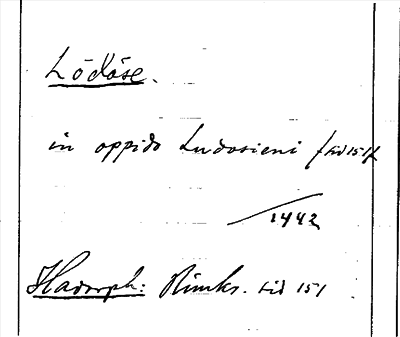 Lödöse.
in oppido Ludosieni
1442
Hadorph: Rimkr. sid 151